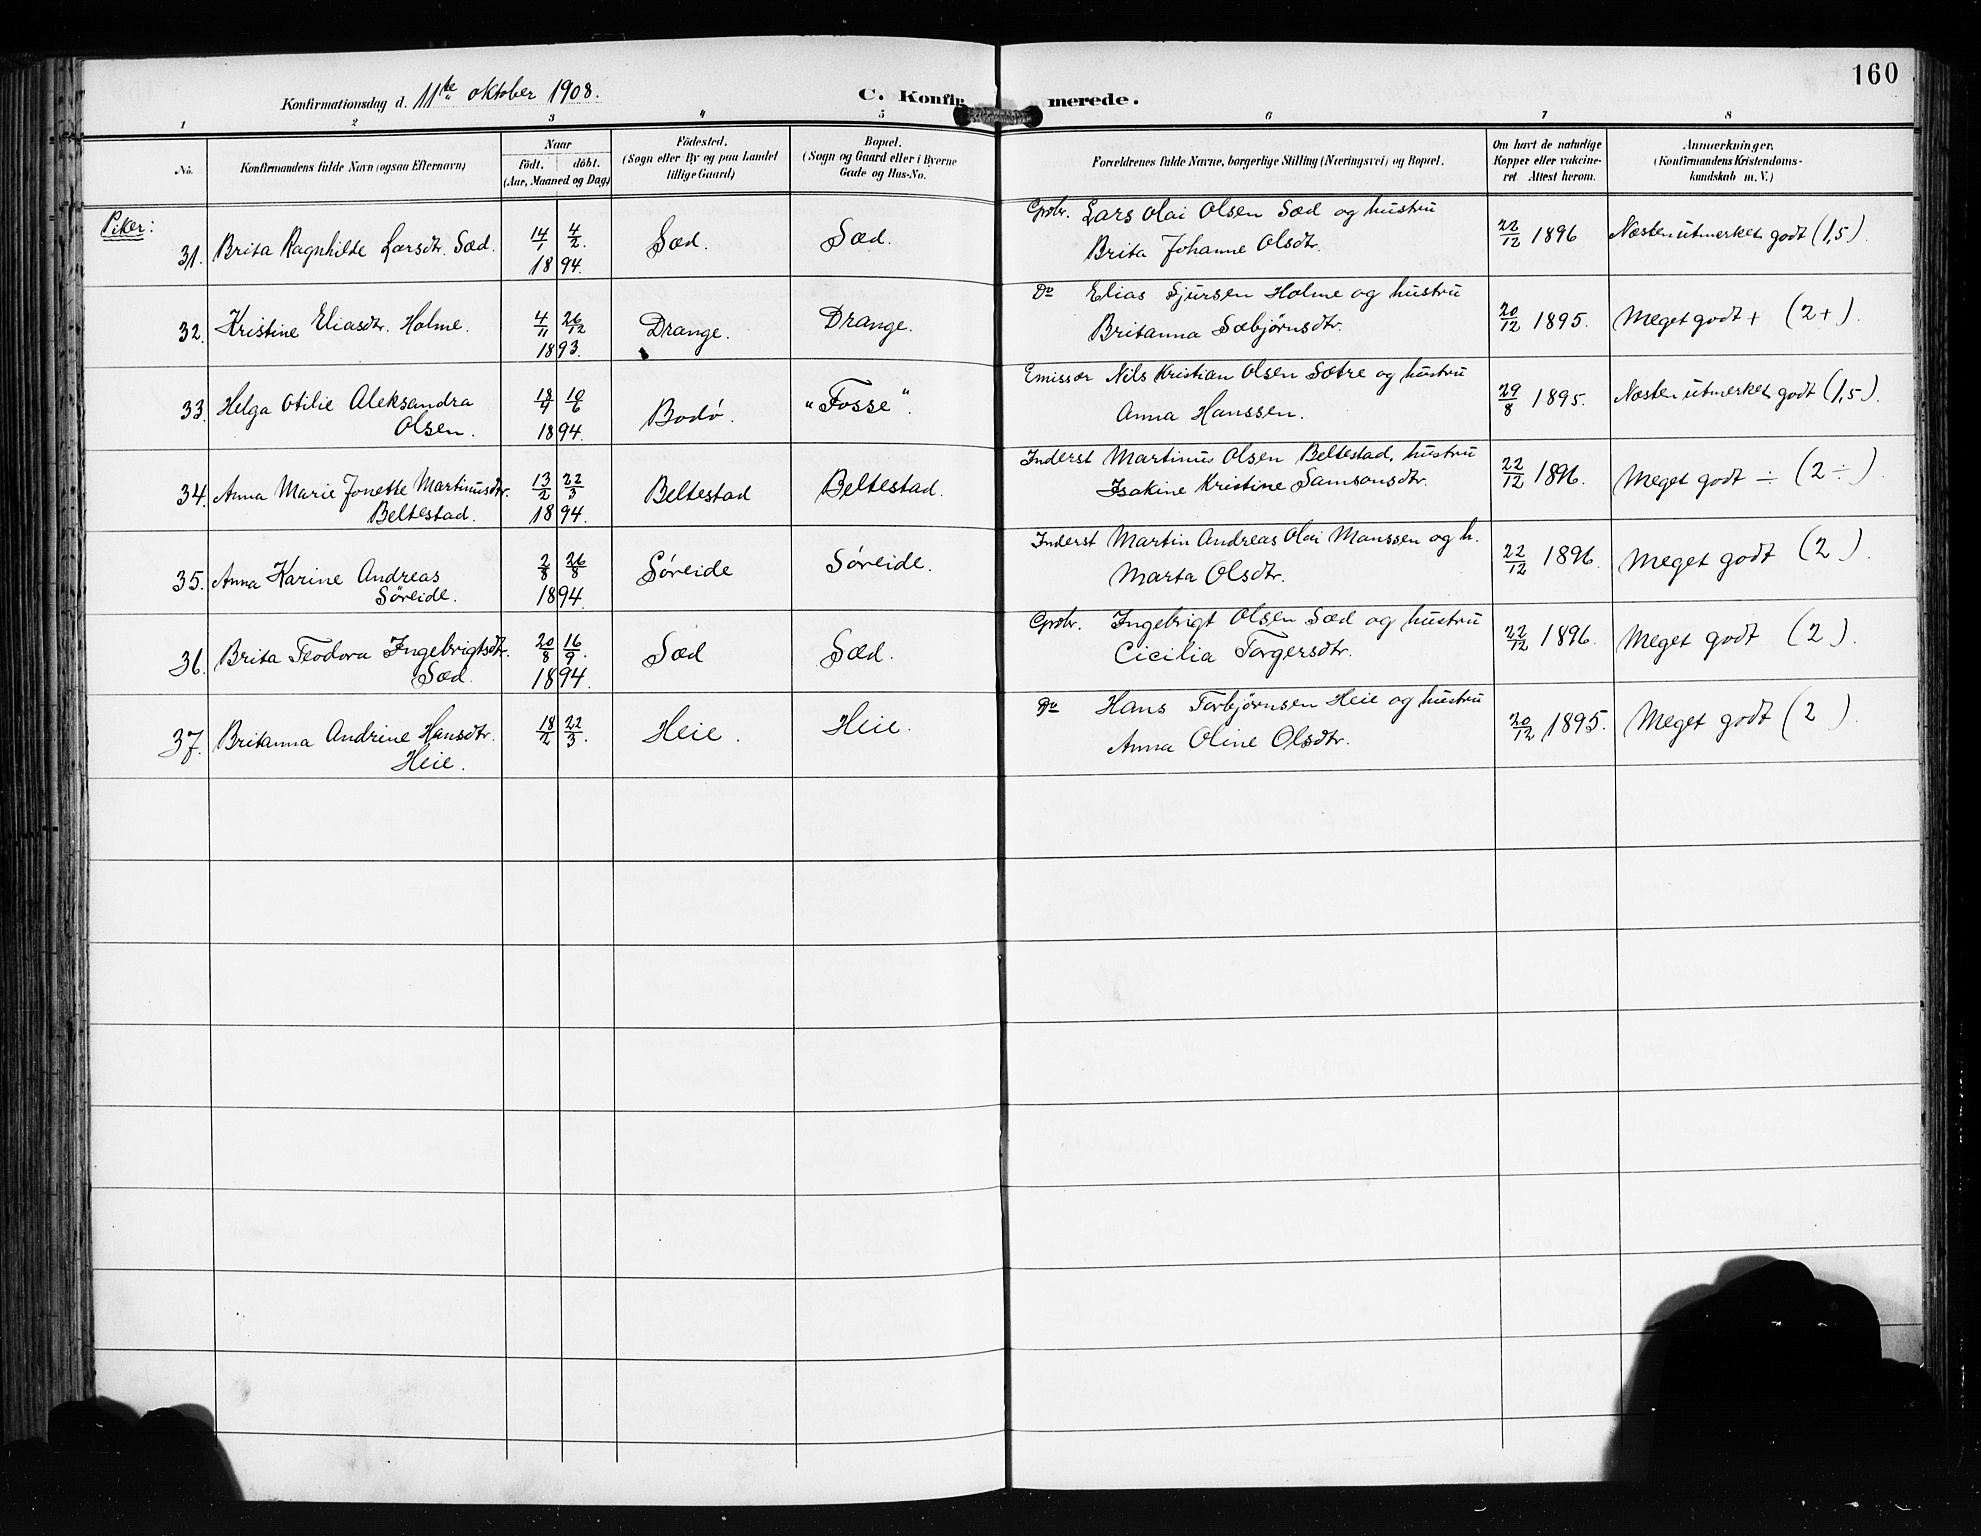 160
Konfirmationsdag d. 11te oktober 1908.
C. Konfir merede.
1 2 3 4 5 6 7 8
No.
Konfirmandens fulde Navn (ogsaa Efternavn)
Naar
födt. döbt.
(Aar, Maaned og Dag)
Födested.
(Sogn eller By og paa Landet
tillige Gaard)
Bopæl.
(Sogn og Gaard eller i Byerne
Gade og Hus-No.
Forældrenes fulde Navne, borgerlige Stilling (Næringsvei) og Bopæl.
Om havt de naturlige
Kopper eller vakcine-
ret Attest herom.
Anmærkninger.
(Konfirmandens Kristendoms-
kundskab m. V.)
Piker:
31. Brita Ragnhilde Larsdtr. Sæd. 14/1 4/2 1894. Sæd. Sæd. Gpbr. Lars Olai Olsen Sæd og hustru
Brita Johanne Olsdtr. 22/12 1896 Næsten utmerket godt (1,5).
32. Kristine Eliasdtr. Holme. 4/11 26/12 1893. Drange. Drange. Do Elias Sjursen Holme og hustru
Britanna Sæbjørnsdtr. 20/12 1895. Meget godt + (2+).
33. Helga Otilie Aleksandra
Olsen. 18/4 10/6 1894. Bodø. "Fosse". Emissær Nils Kristian Olsen Sætre og hustru
Anna Hanssen. 29/8 1895. Næsten utmerket godt (1,5).
34. Anna Marie Jonette Martinusdtr.
Beltestad. 13/2 22/3 1894. Beltestad Beltestad. Inderst Martinus Olsen Beltestad, hustru
Isakine Kristine Samsonsdtr. 22/12 1896. Meget godt ÷ (2÷).
35. Anna Karine Andreas
Søreide. 2/8 26/8 1894. Søreide Søreide. Inderst Martin Andreas Olai Monssen og h.
Marta Olsdtr. 22/12 1896. Meget godt (2).
36. Brita Teodora Ingebrigtsdtr.
Sæd. 20/8 16/9. 1894. Sæd Sæd. Gpbr. Ingebrigt Olsen Sæd og hustru
Cicilia Torgersdtr. 22/12 1896. Meget godt (2).
37. Britanna Andrine Hansdtr.
Heie. 18/2 22/3. Heie. Heie. Do Hans Torbjørnsen Heie og hustru
Anna Oline Olsdtr. 20/12 1895. Meget godt (2).